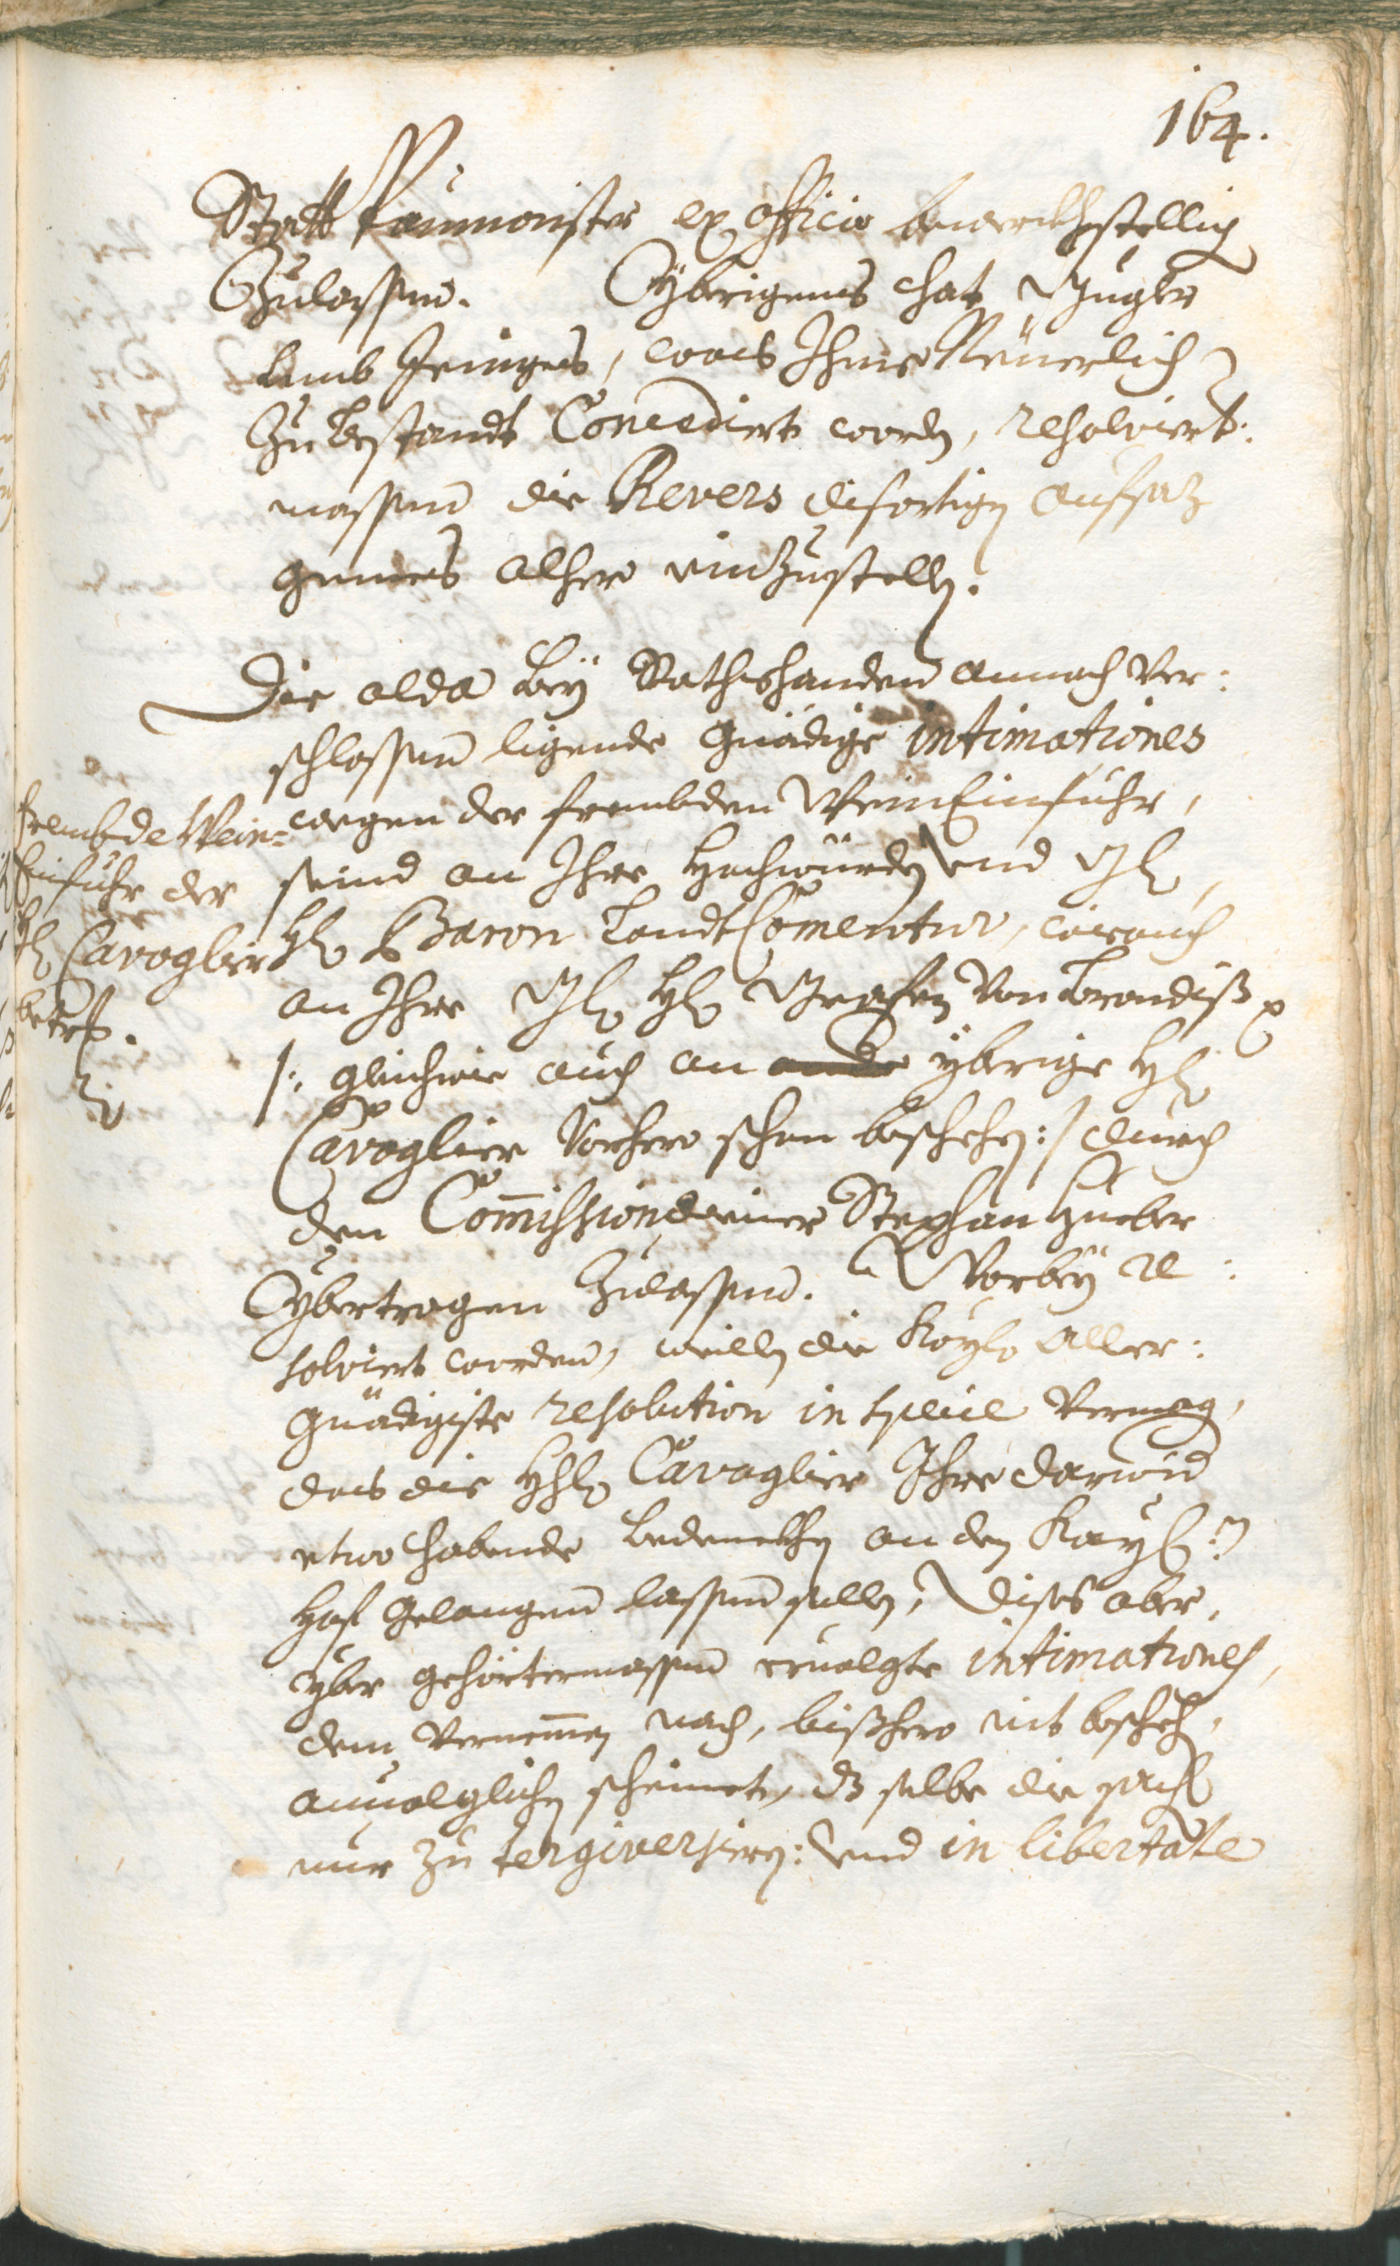 164.
Statt Paumaister ex officio bewerckhstellig
Zulassen. Ybrigens hat Jugler
umb Jeniges, was Ihme Neuerlich
Zu bestandt Concediert worden, resolviert:
massen die Revers diсfortigen aufsaz
gemes alhero einzustellen.
Die alda bey Rathshanden annach Ver:
schlossen ligende gnädige intimationes
wegen der frembden Wein Einfuhr,
seind an Ihre Hochwürden und Gl
Hl Baron LandtComentur, wie auch
an Ihre Gl Hl Grafen Von Brandiß
/: gleichwie auch an ybrige Hl
Cavaglier Vorhero schon beschehen :/ durch
den Com̄issions diener Stephan Hueber
Ybertragen Zulassen. Worbey re:
solviert worden, weillen die Kayl. Aller:
gnädigiste resolution in specie Vermag,
das die Hhl Cavaglier Ihre darwid
etwo habende bedenckhen an den Kayl:
Hof gelangen lassen sollen, dises aber,
yber gehörtermassen ervolgte intimationes,
dem Vernem̄en nach, bißhero nit beschehen,
anvolglichen scheinet, dz selbe die sach
nur zu tergiversieren: und in libertate
frembde Wein=
Einfuhr der
Hl Cavaglier
betrf.